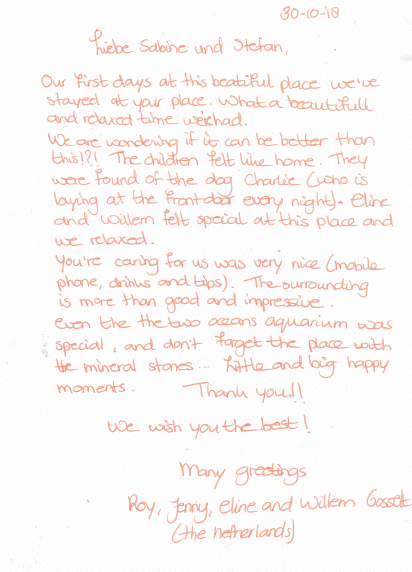 30-10-18
Liebe Sabine und Stefan,
Our first days at this beatiful place we've
stayed at your place. What a beautifull
and relaxed time we had.
We are wondering if it can be better than
this!?! The children felt like home. They
were found of the dog Charlie (who is
laying at the frontdoor every night). Eline
and Willem felt special at this place and
we relaxed.
You're caring for us was very nice (mobile
phone, drinks and tips). The surrounding
is more than good and impressive.
Even the the two oceans aquarium was
special, and don't forget the place with
the mineral stones... Little and big happy
moments. Thank you!!
We wish you the best!
Many greetings
Roy, Jenny, Eline and Willem
(the netherlands)